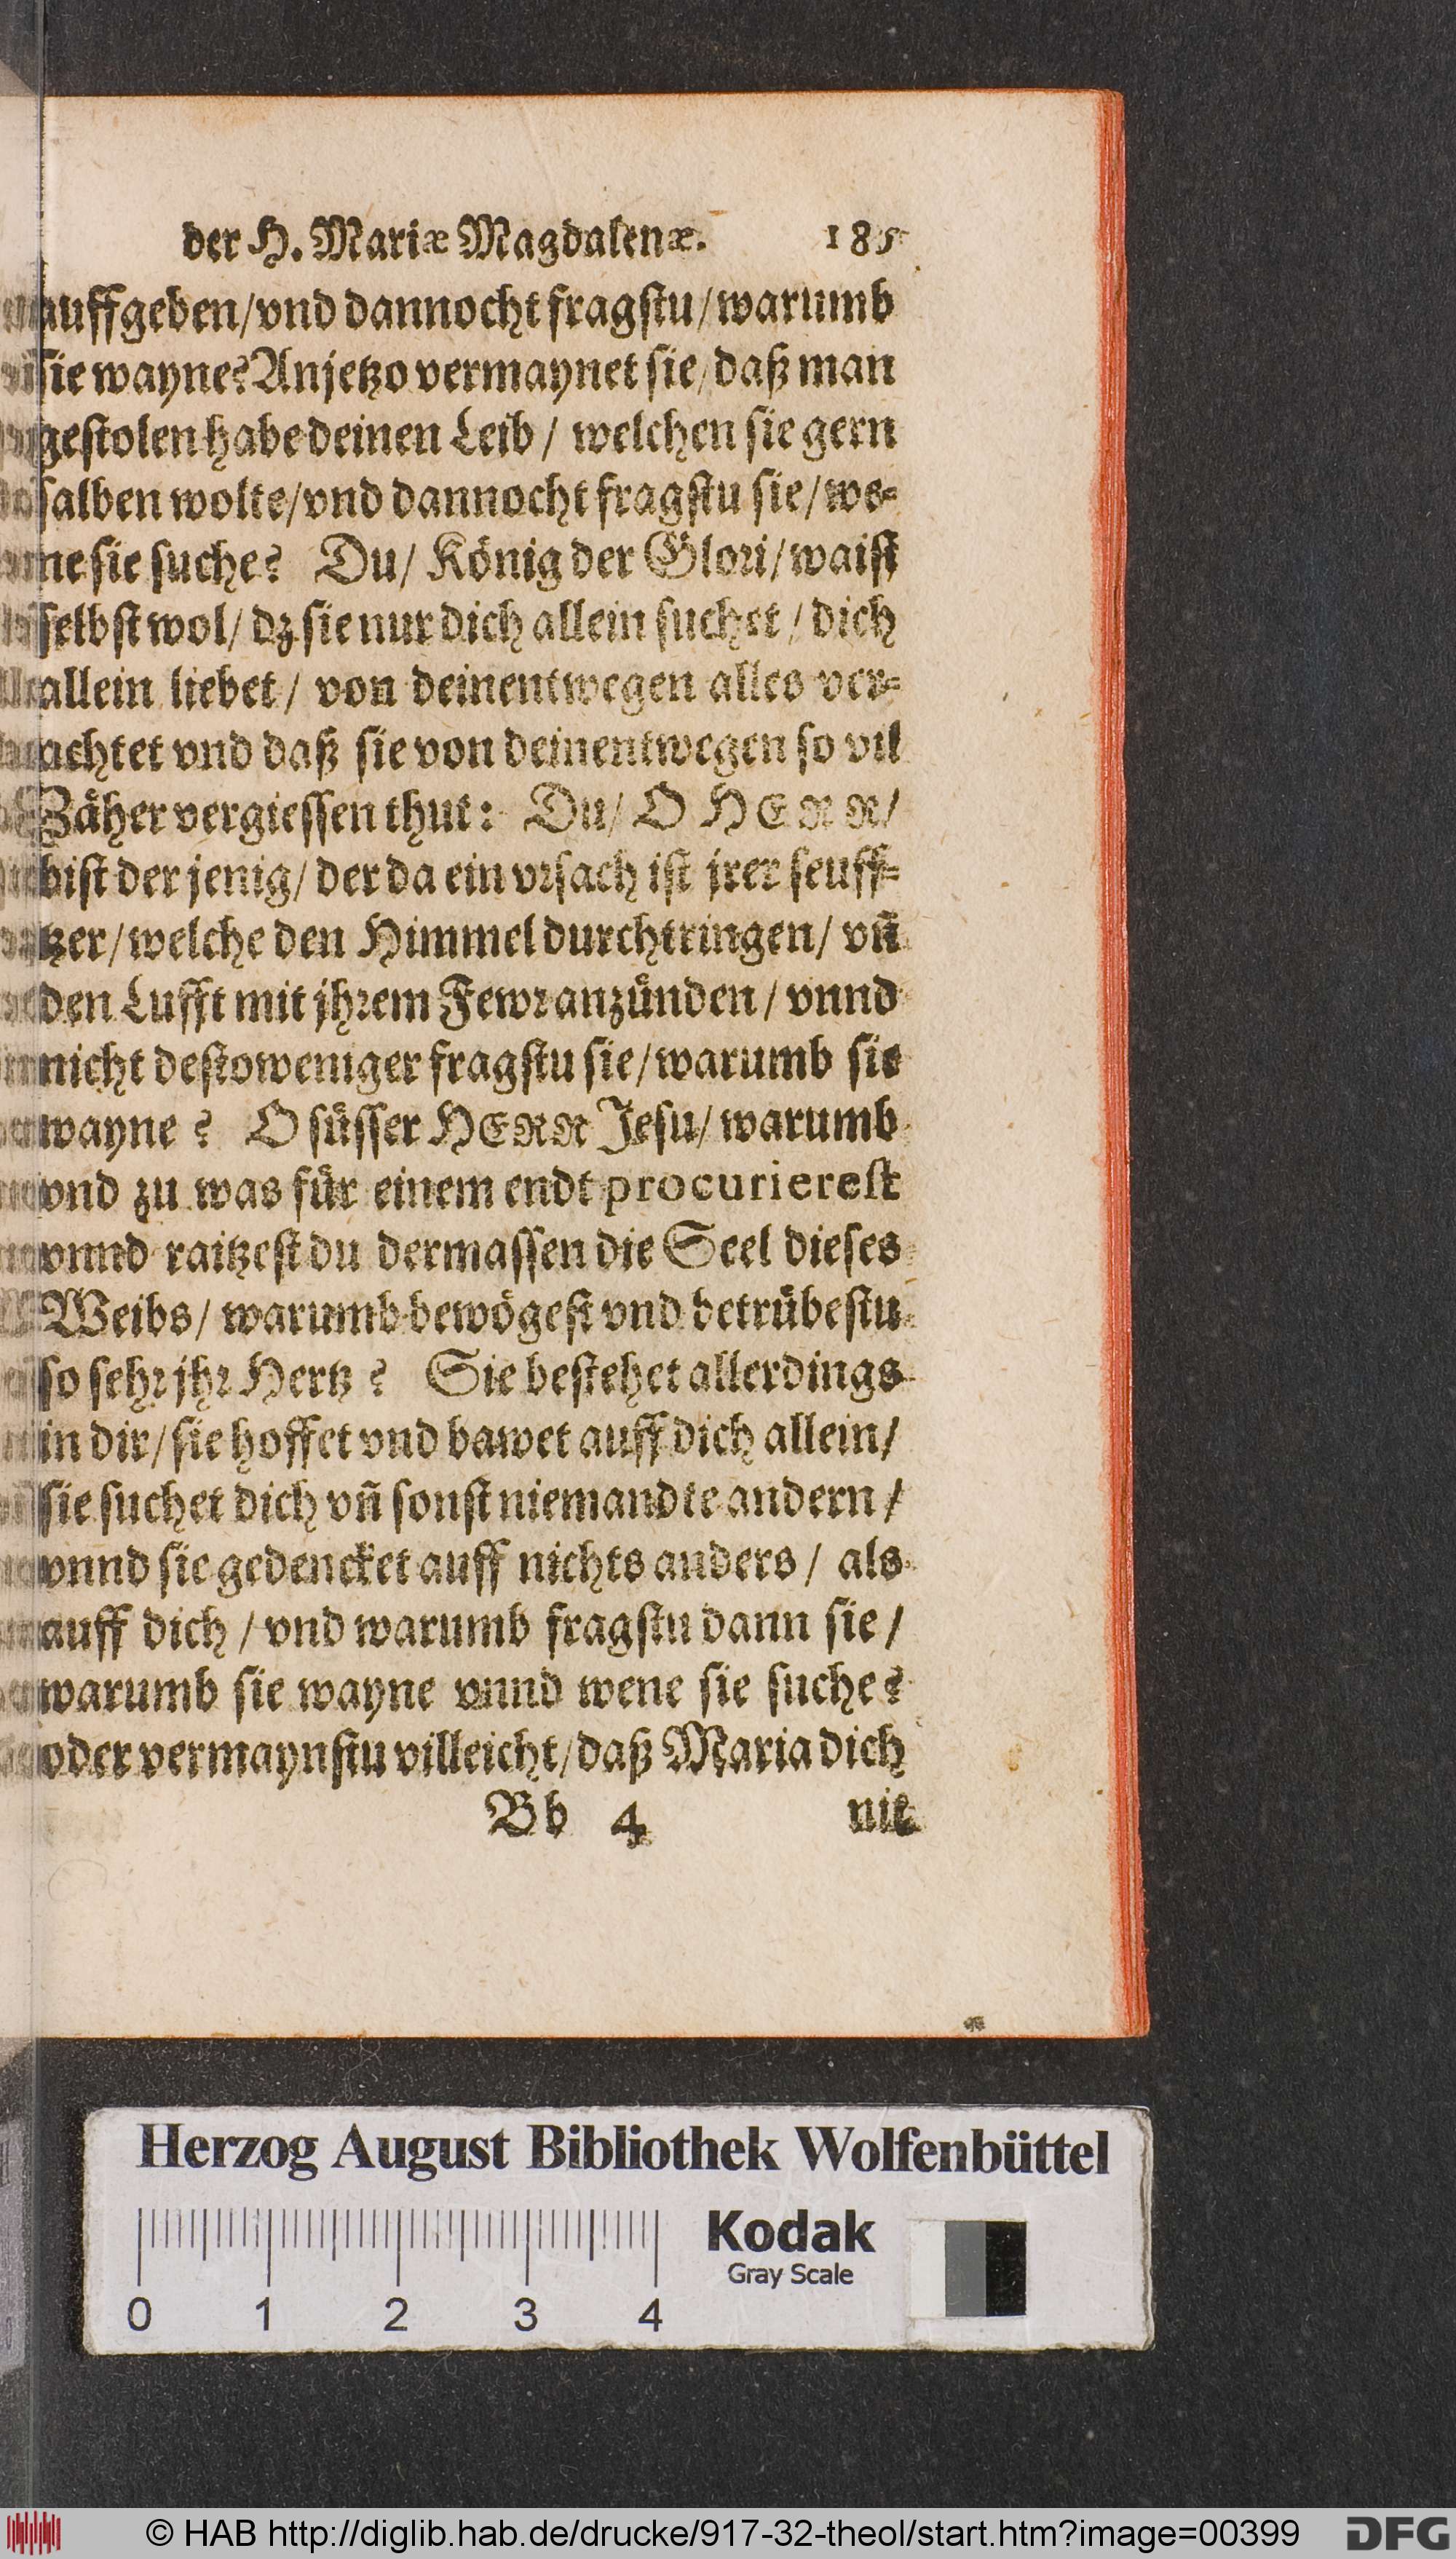 der H. Mariæ Magdalenæ. 185
auffgeben/vnd dannocht fragstu/warumb
sie wayne? Anjetzo vermaynet sie/daß man
gestolen habe deinen Leib / welchen sie gern
salben wolte/vnd dannocht fragstu sie/we-
me sie suche? Du/ König der Glori/waist
selbst wol/ dz sie nur dich allein suchet / dich
allein liebet / von deinentwegen alles ver-
achtet vnd daß sie von deinentwegen so vil
Zäher vergiessen thut: Du/ O HERR/
bist der jenig/ der da ein vrsach ist jrer seuff-
tzer/welche den Himmel durchtringen/ vñ
den Lufft mit jhrem Fewr anzünden / vnnd
nicht destoweniger fragstu sie/warumb sie
wayne ? O süsser HERR Jesu/ warumb
vnd zu was für einem endt procurierest
vnnd raitzest du dermassen die Seel dieses
Weibs/ warumb bewögest vnd betrübestu
so sehr jhr Hertz ? Sie bestehet allerdings
in dir/ sie hoffet vnd bawet auff dich allein/
sie suchet dich vñ sonst niemandte andern /
vnnd sie gedencket auff nichts anders / als
auff dich / vnd warumb fragstu dann sie /
warumb sie wayne vnnd wene sie suche?
oder vermaynstu villeicht/daß Maria dich
Bb 4 nit
Herzog August Bibliothek Wolfenbüttel
Kodak
Gray Scale
0 1 2 3 4
© HAB http://diglib.hab.de/drucke/917-32-theol/start.htm?image=00399 DFG